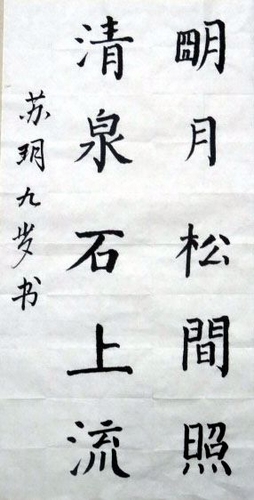 明月松間照
清泉石上流
苏玥九岁书